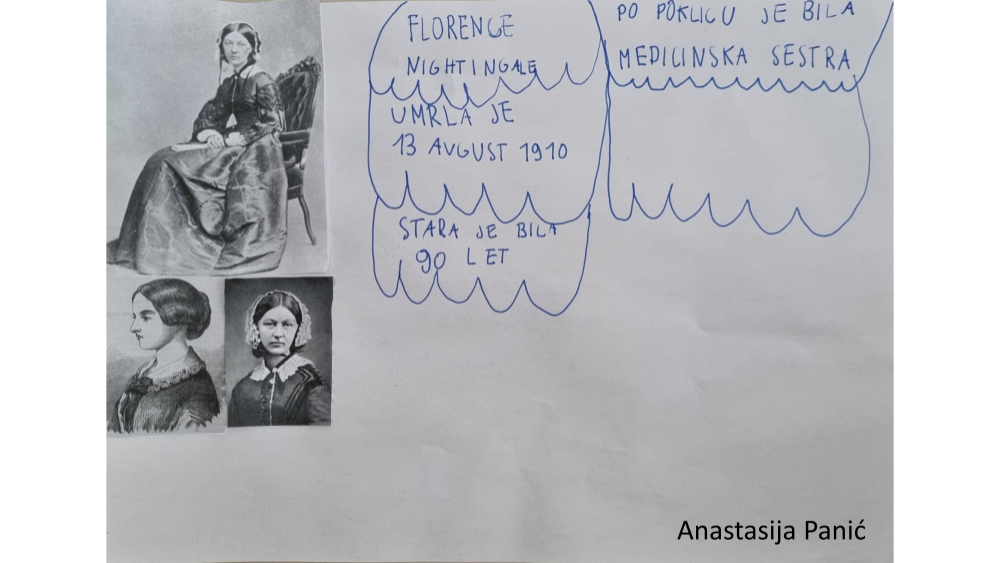 FLORENCE
NIGHTINGALE
UMRLA JE
13 AVGUST 1910
STARA JE BILA
90 LET
PO POKLICU JE BILA
MEDICINSKA SESTRA
Anastasija Panić